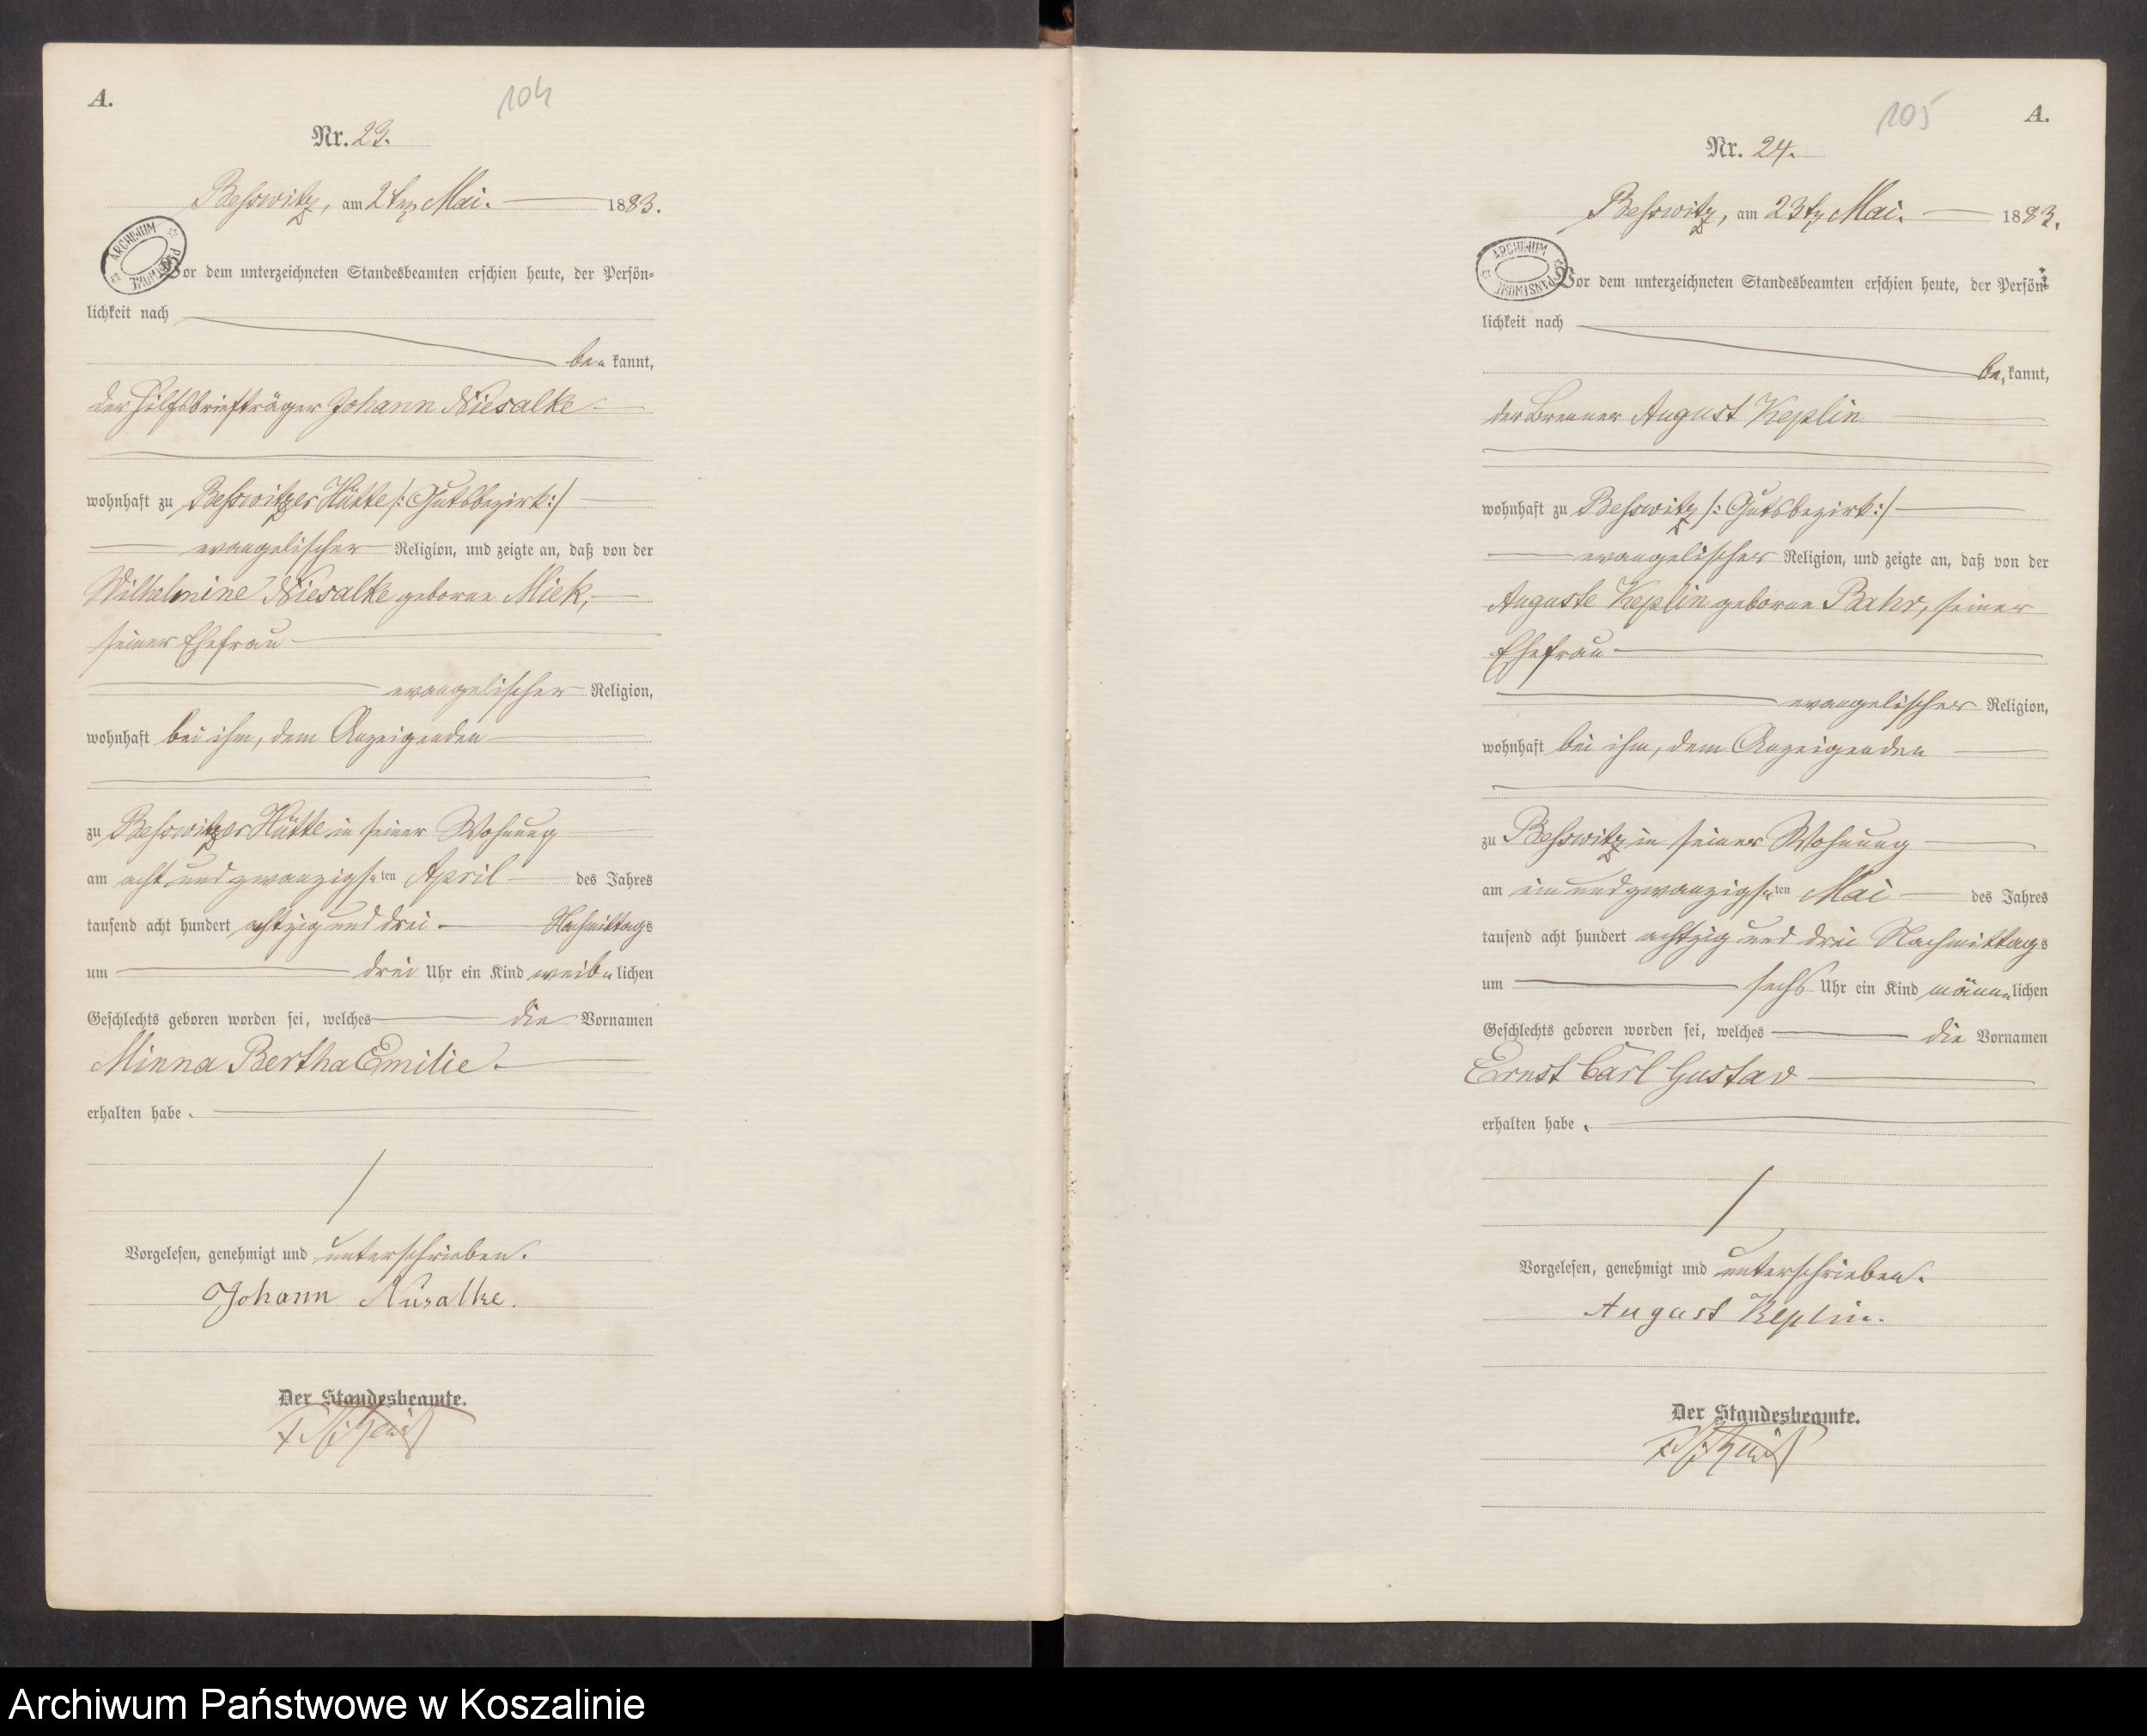 A.
104
Nr. 23.
Besswitz, am 2ten Mai. 1883.
ARCHIWUM PAŃSTWOWE
Vor dem unterzeichneten Standesbeamten erschien heute, der Persön-
lichkeit nach
be- kannt,
der Hilfsbriefträger Johann Niesalke
wohnhaft zu Besswitzer Hütte /: Gutsbezirk :/
evangelischer Religion, und zeigte an, daß von der
Wilhelmine Niesalke geborne Miek,
seiner Ehefrau
evangelischer Religion,
wohnhaft bei ihm, dem Anzeigenden
zu Besswitzer Hütte in seiner Wohnung
am acht und zwanzigsten April des Jahres
tausend acht hundert achtzig und drei Nachmittags
um drei Uhr ein Kind weib- lichen
Geschlechts geboren worden sei, welches die Vornamen
Minna Bertha Emilie.
erhalten habe.
Vorgelesen, genehmigt und unterschrieben.
Johann Niesalke.
Der Standesbeamte.
A.
105
Nr. 24.
Besswitz, am 23ten Mai. 1883.
ARCHIWUM PAŃSTWOWE
Vor dem unterzeichneten Standesbeamten erschien heute, der Persön-
lichkeit nach
be- kannt,
der Brenner August Keplin
wohnhaft zu Besswitz /: Gutsbezirk :/
evangelischer Religion, und zeigte an, daß von der
Auguste Keplin geborne Bahr, seiner
Ehefrau
evangelischer Religion,
wohnhaft bei ihm, dem Anzeigenden
zu Besswitz in seiner Wohnung
am ein und zwanzigsten Mai des Jahres
tausend acht hundert achtzig und drei Nachmittags
um sechs Uhr ein Kind männ- lichen
Geschlechts geboren worden sei, welches die Vornamen
Ernst Carl Gustav
erhalten habe.
Vorgelesen, genehmigt und unterschrieben.
August Keplin.
Der Standesbeamte.
Archiwum Państwowe w Koszalinie